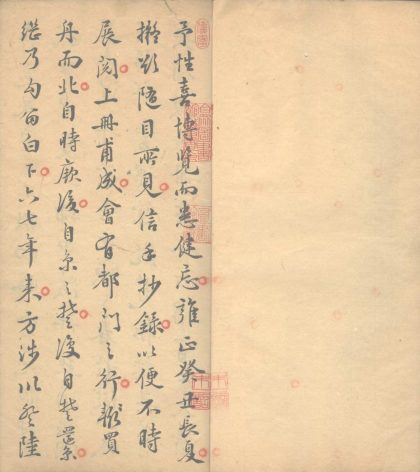 予性喜博覽而患健忘雍正癸丑長夏
擬欲隨目所見信手抄錄以便不時
展閱上冊甫成會有都門之行輒買
舟而北自時厥後自京之楚復自楚
繼乃勾留白下六七年來方涉川登陸